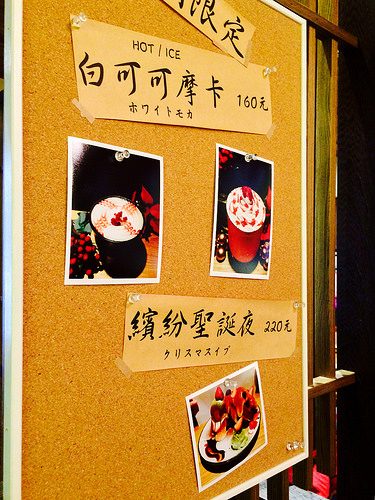 限定
HOT / ICE
白可可摩卡 160元
ホワイトモカ
繽紛聖誕夜 220元
クリスマスイブ